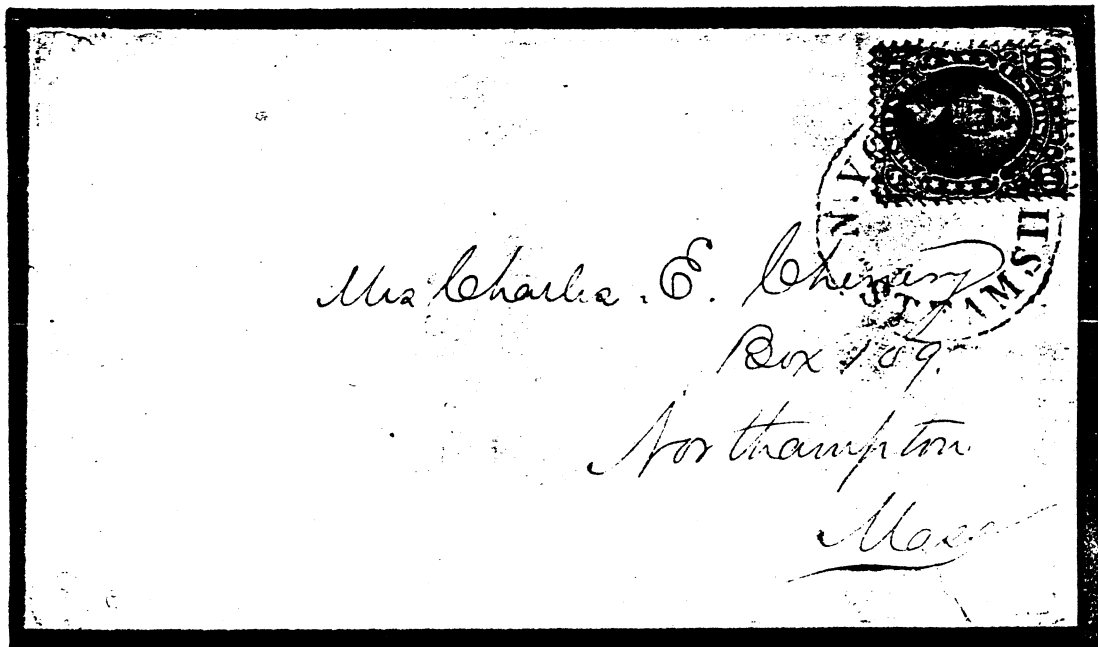 N.Y. STEAMSH
Mrs Charles . E. Cheney
Box 109.
Northampton
Mass